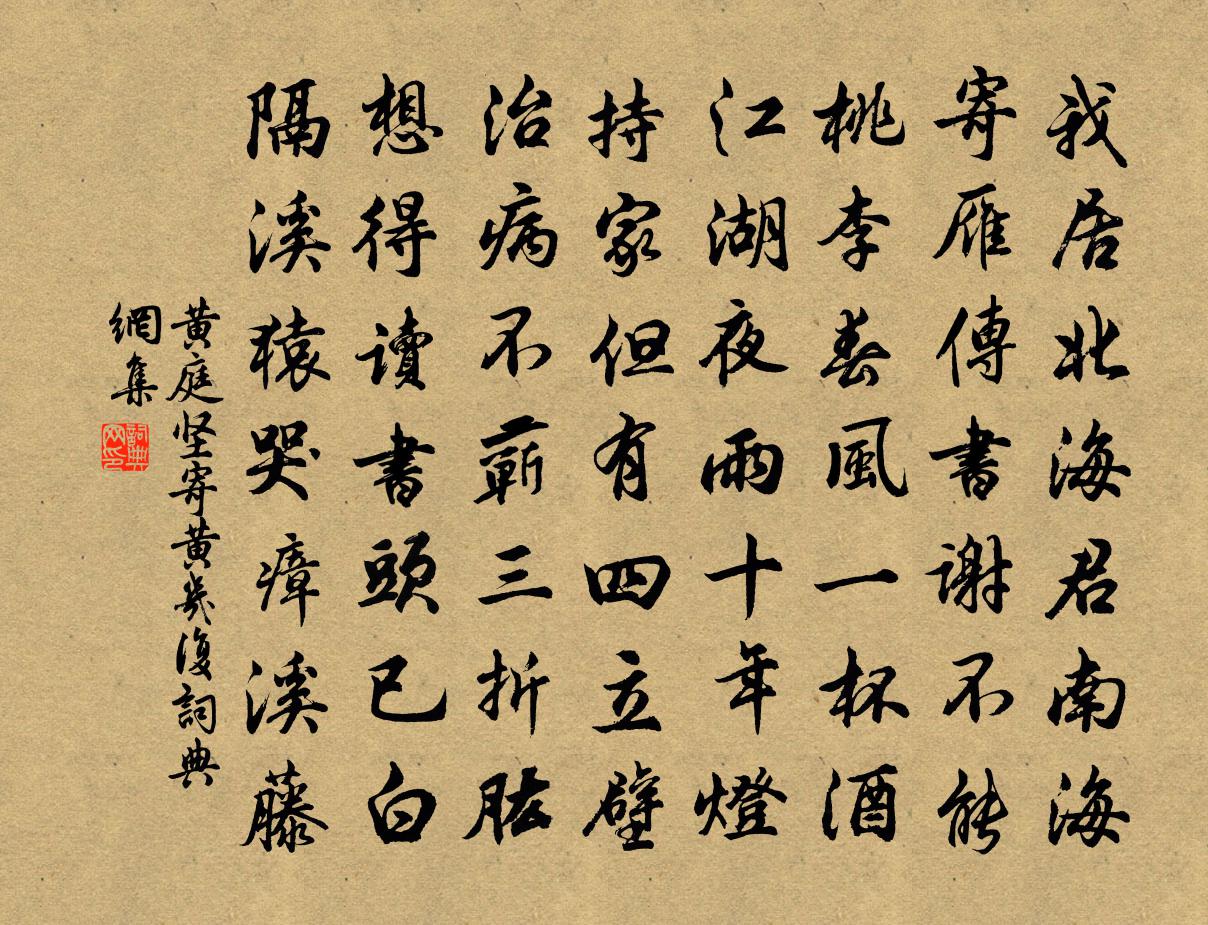 我居北海君南海
寄雁傳書謝不能
桃李春風一杯酒
江湖夜雨十年燈
持家但有四立壁
治病不蘄三折肱
想得讀書頭已白
隔溪猿哭瘴溪藤
黃庭坚寄黃幾復詞典
網集
詞典
网印